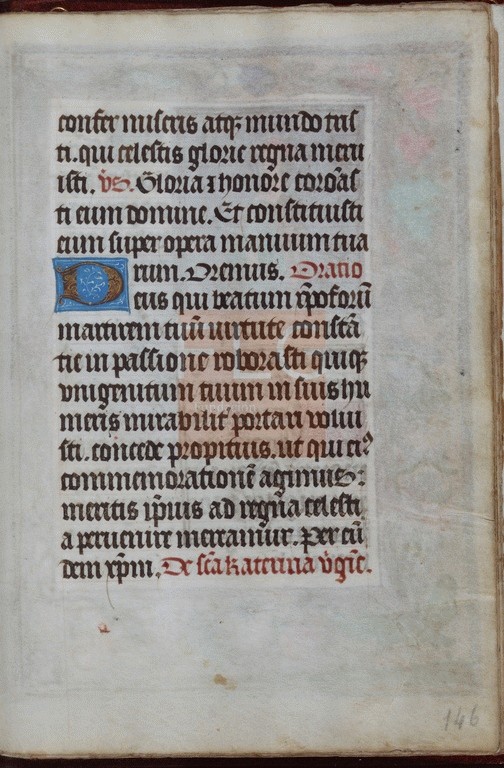 confer miseris atq₃ mundo tris
ti. qui celestis glorie regna meru
isti. v̄s. Gloria ⁊ honore coro̅as
ti eum domine. Et constituisti
eum super opera manuum tua
rum. Oremus. Oratio
Deus qui beatum xp̄oforū
martirem tuū uirtute constā
tie in passione roborasti quiq₃
vnigenitum tuum in suis hu
meris mirabilit᷑ portari volui
sti. concede propitius. ut qui ei⁹
commemorationē agimus:
meritis ip̄ius ad regna celesti
a peruenire mereamur. Per eū
dem xp̄m. De scā Katerina v̄gīe.
146